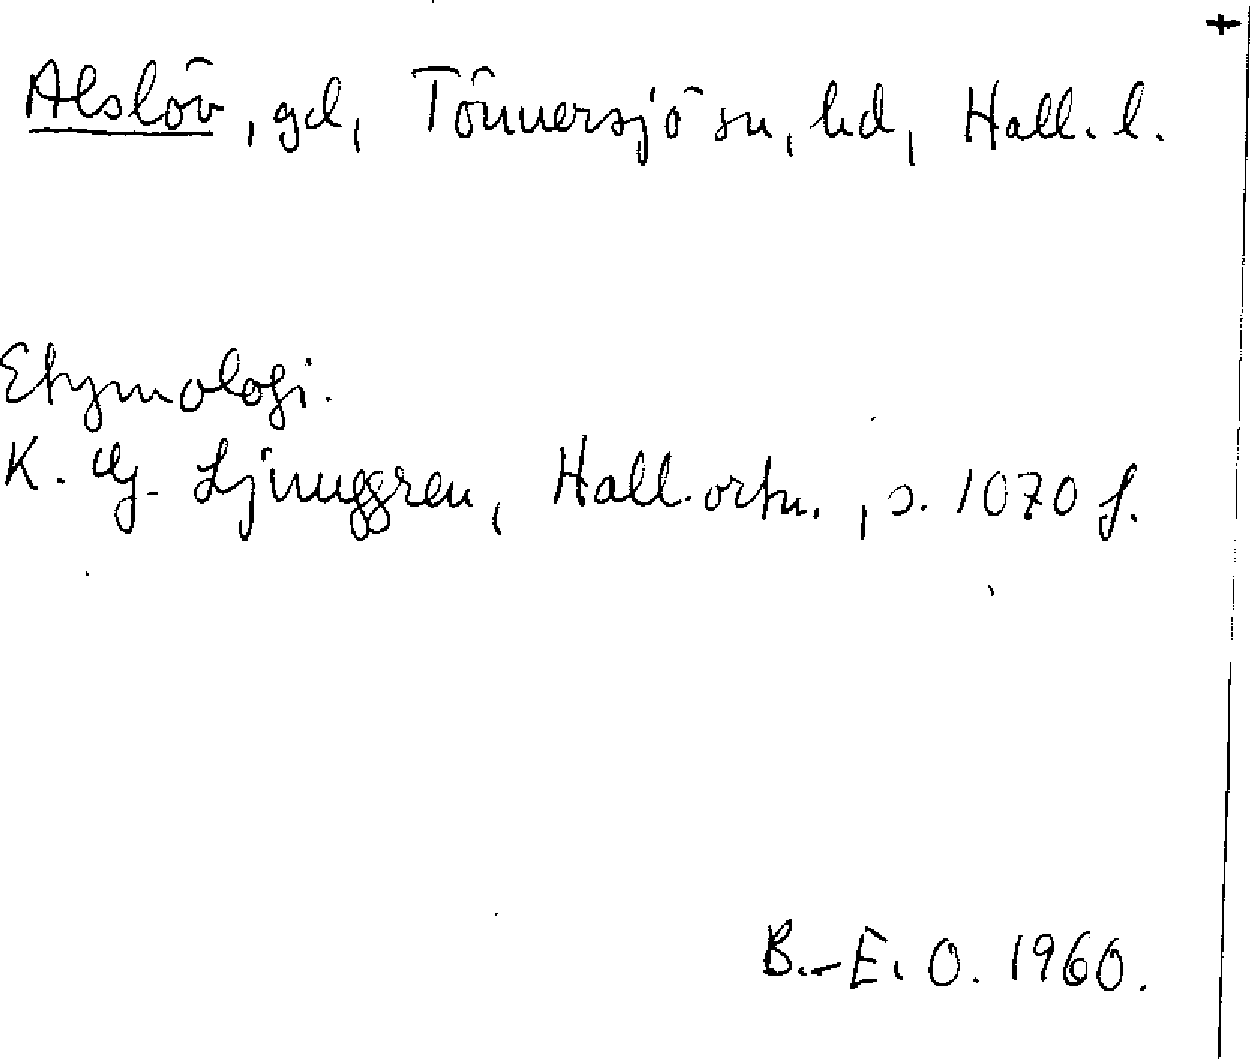 Alslöv, gd, Tönnersjö sn, hd, Hall. l.
Etymologi.
K. G. Ljunggren, Hall. ortn., s. 1070 f.
B.-E. O. 1960.